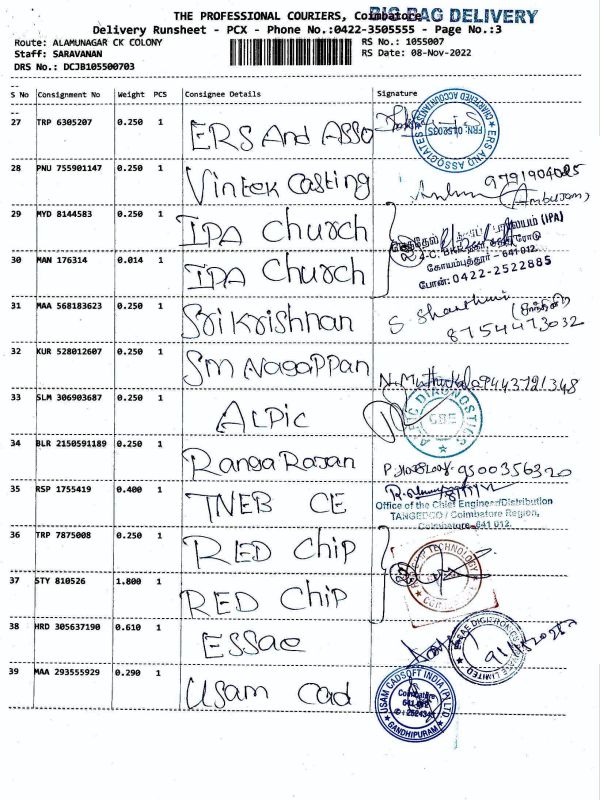 THE PROFESSIONAL COURIERS, Coimbatore
BIG BAG DELIVERY
Delivery Runsheet - PCX - Phone No.:0422-3505555 - Page No.:3
Route: ALAMUNAGAR CK COLONY
RS No.: 1055007
Staff: SARAVANAN
RS Date: 08-Nov-2022
DRS No.: DCJB105500703
S No Consignment No Weight PCS Consignee Details Signature
27 TRP 6305207 0.250 1 ERS And Asso
CHARTERED ACCOUNTANTS
ERS AND ASSOCIATES
28 PNU 755901147 0.250 1 Vintek Casting
9791904085
(Amburam)
29 MYD 8144583 0.250 1 IPA Church
(IPA)
30 MAN 176314 0.014 1 IPA Church
கோயம்புத்தூர் - 641 012.
போன்: 0422-2522885
31 MAA 568183623 0.250 1 Sri Krishnan
8754473032
32 KUR 528012607 0.250 1 Sm Nagappan
9443721348
33 SLM 306903687 0.250 1 ALPIC
DIAGNOSTICS
CBE
34 BLR 2150591189 0.250 1 Ranga Rasan
9500356320
35 RSP 1755419 0.400 1 TNEB CE
Office of the Chief Engineer/Distribution
TANGEDCO / Coimbatore Region,
Coimbatore - 641 012.
36 TRP 7875008 0.250 1 RED Chip
CHIP TECHNOLOGY
37 STY 810526 1.800 1 RED Chip
38 HRD 305637190 0.610 1 ESSae
39 MAA 293555929 0.290 1 Usam cad
USAM CADSOFT INDIA (P) LTD
Coimbatore
GANDHIPURAM